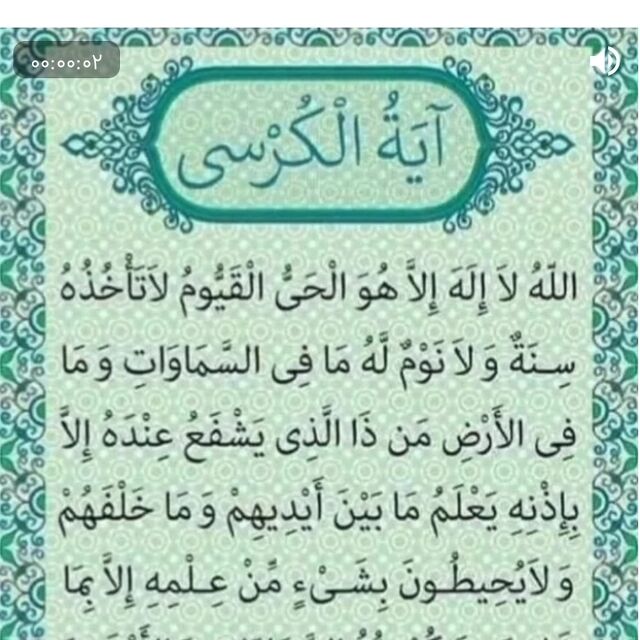 ۰۰:۰۰:۰۲
آيَةُ الْكُرْسى
اللّهُ لاَ إِلَهَ إِلاَّ هُوَ الْحَىُّ الْقَيُّومُ لاَتَأْخُذُهُ
سِنَةٌ وَ لاَ نَوْمٌ لَّهُ مَا فِى السَّمَاوَاتِ وَ مَا
فِى الأَرْضِ مَن ذَا الَّذِى يَشْفَعُ عِنْدَهُ إِلاَّ
بِإِذْنِهِ يَعْلَمُ مَا بَيْنَ أَيْدِيهِمْ وَ مَا خَلْفَهُمْ
وَ لاَيُحِيطُونَ بِشَىْءٍ مِّنْ عِلْمِهِ إِلاَّ بِمَا